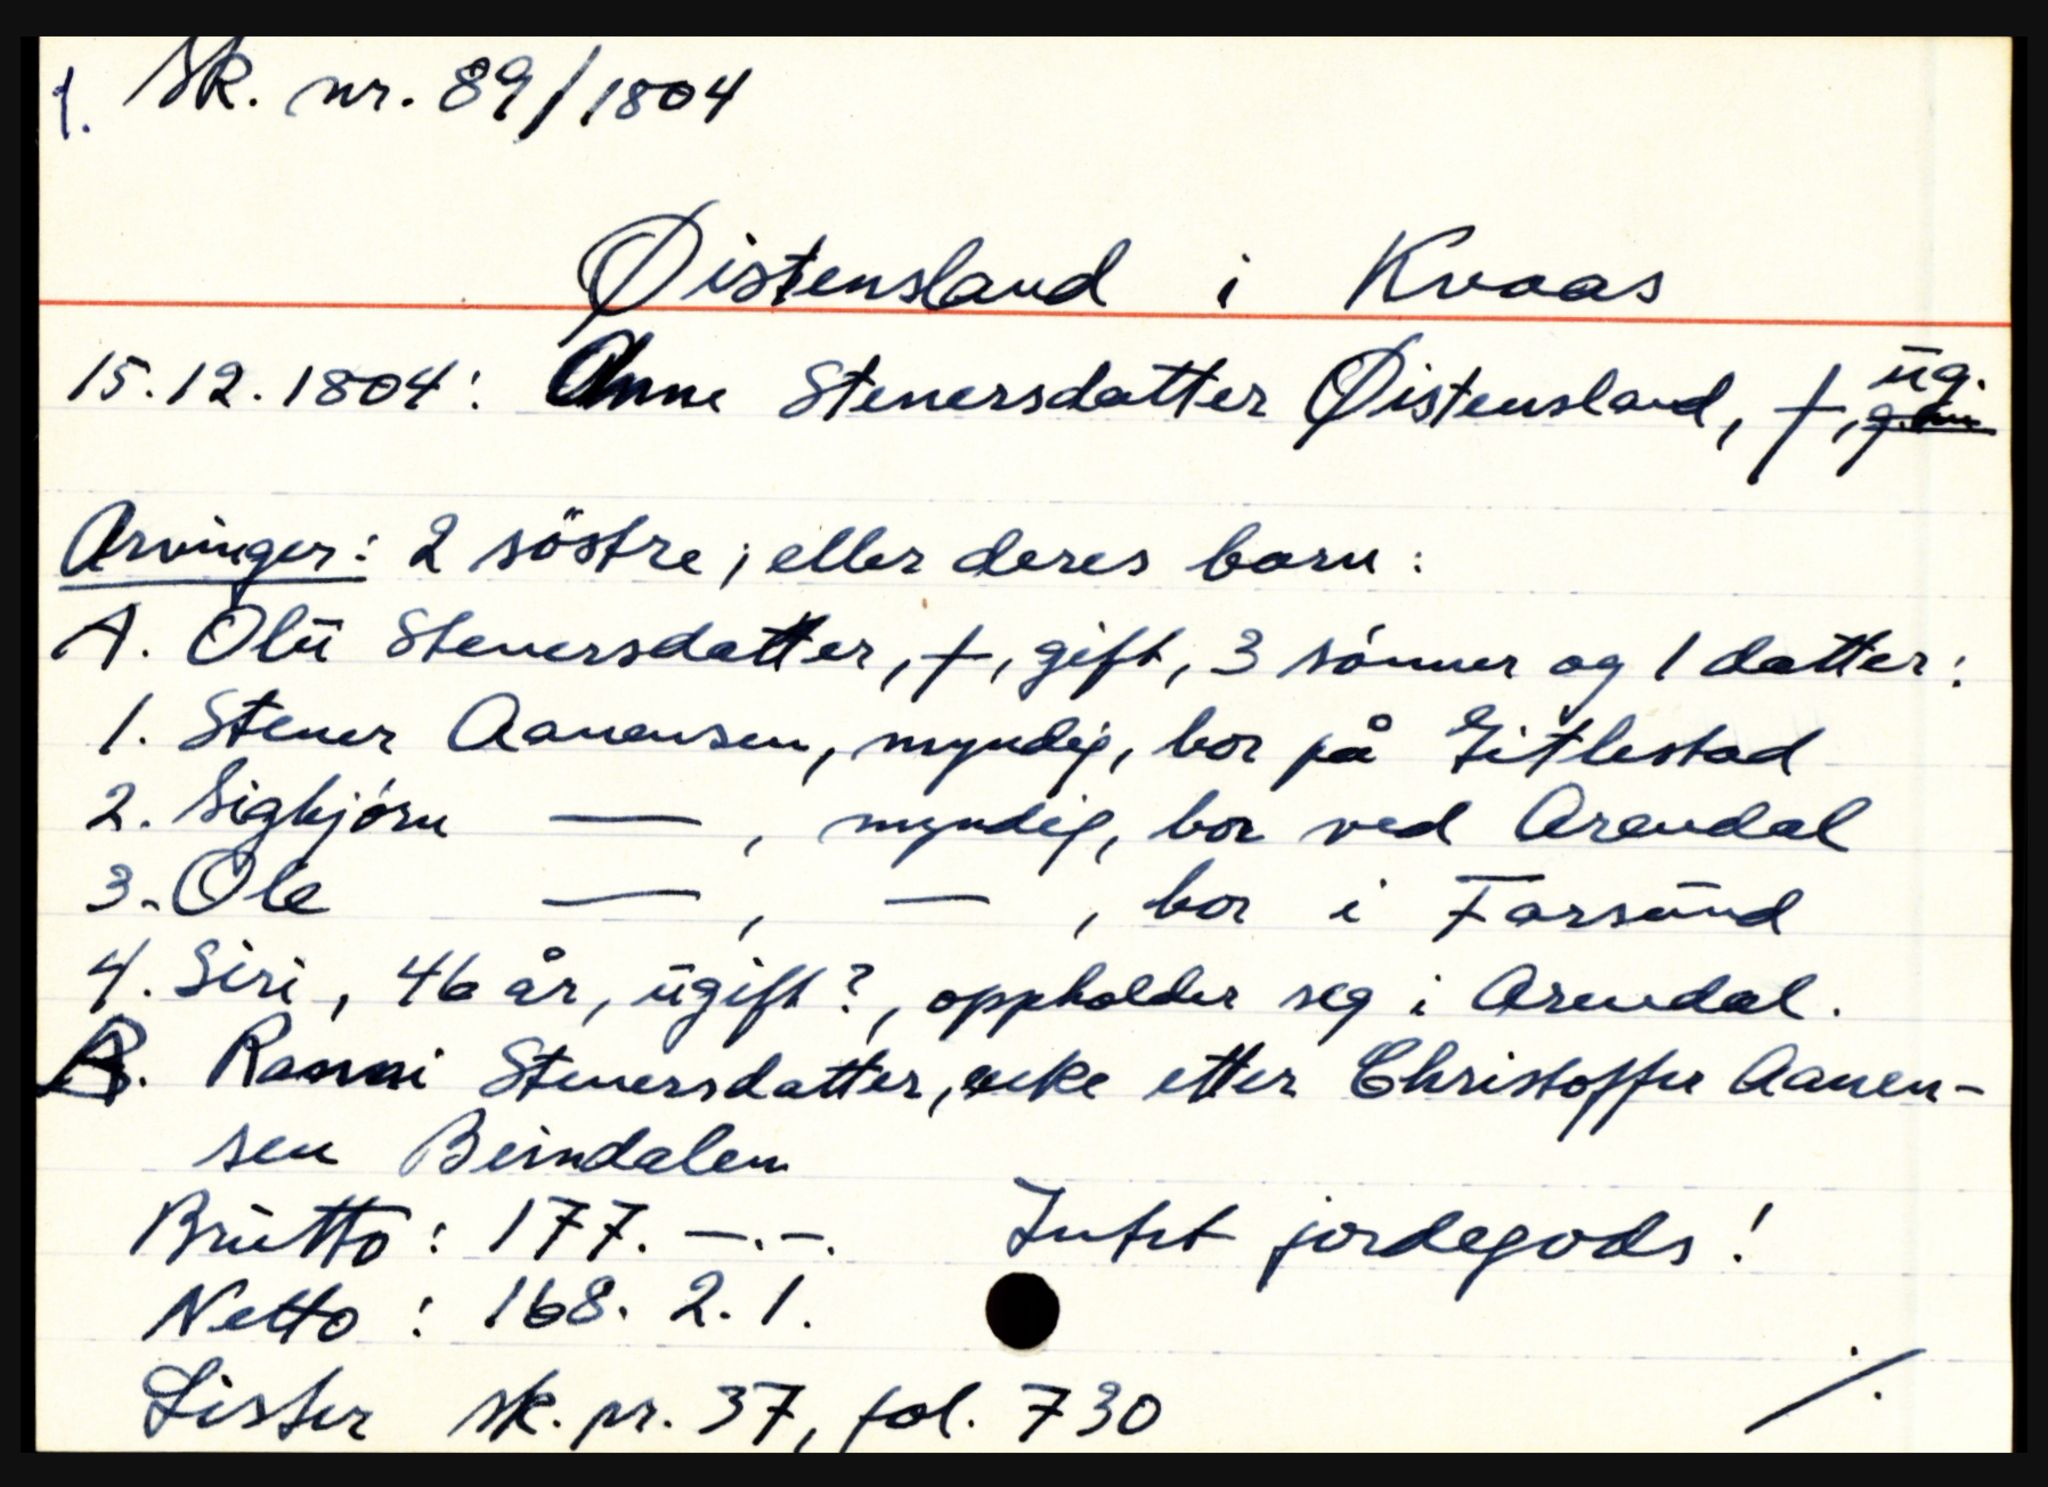 1. Sk. nr. 89/1804
Øistensland i Kvaas
15.12.1804: Anne Stenersdatter Øistensland, †, ug.
Arvinger: 2 söstre; eller deres barn:
A. Olü Stenersdatter, †, gift, 3 sönner og 1 datter:
1. Stener Aanensen, myndig, bor på Gitlestad
2. Sigbjörn —, myndig, bor ved Arendal
3. Ole —, —, bor i Farsund
4. Siri, 46 år, ugift?, oppholder seg i Arendal.
B. Ranni Stenersdatter, enke etter Christoffer Aanen-
sen Beindalen
Brutto: 177. —.—. Intet jordegods!
Netto: 168. 2. 1.
Lister sk. pr. 37, fol. 730 ./.